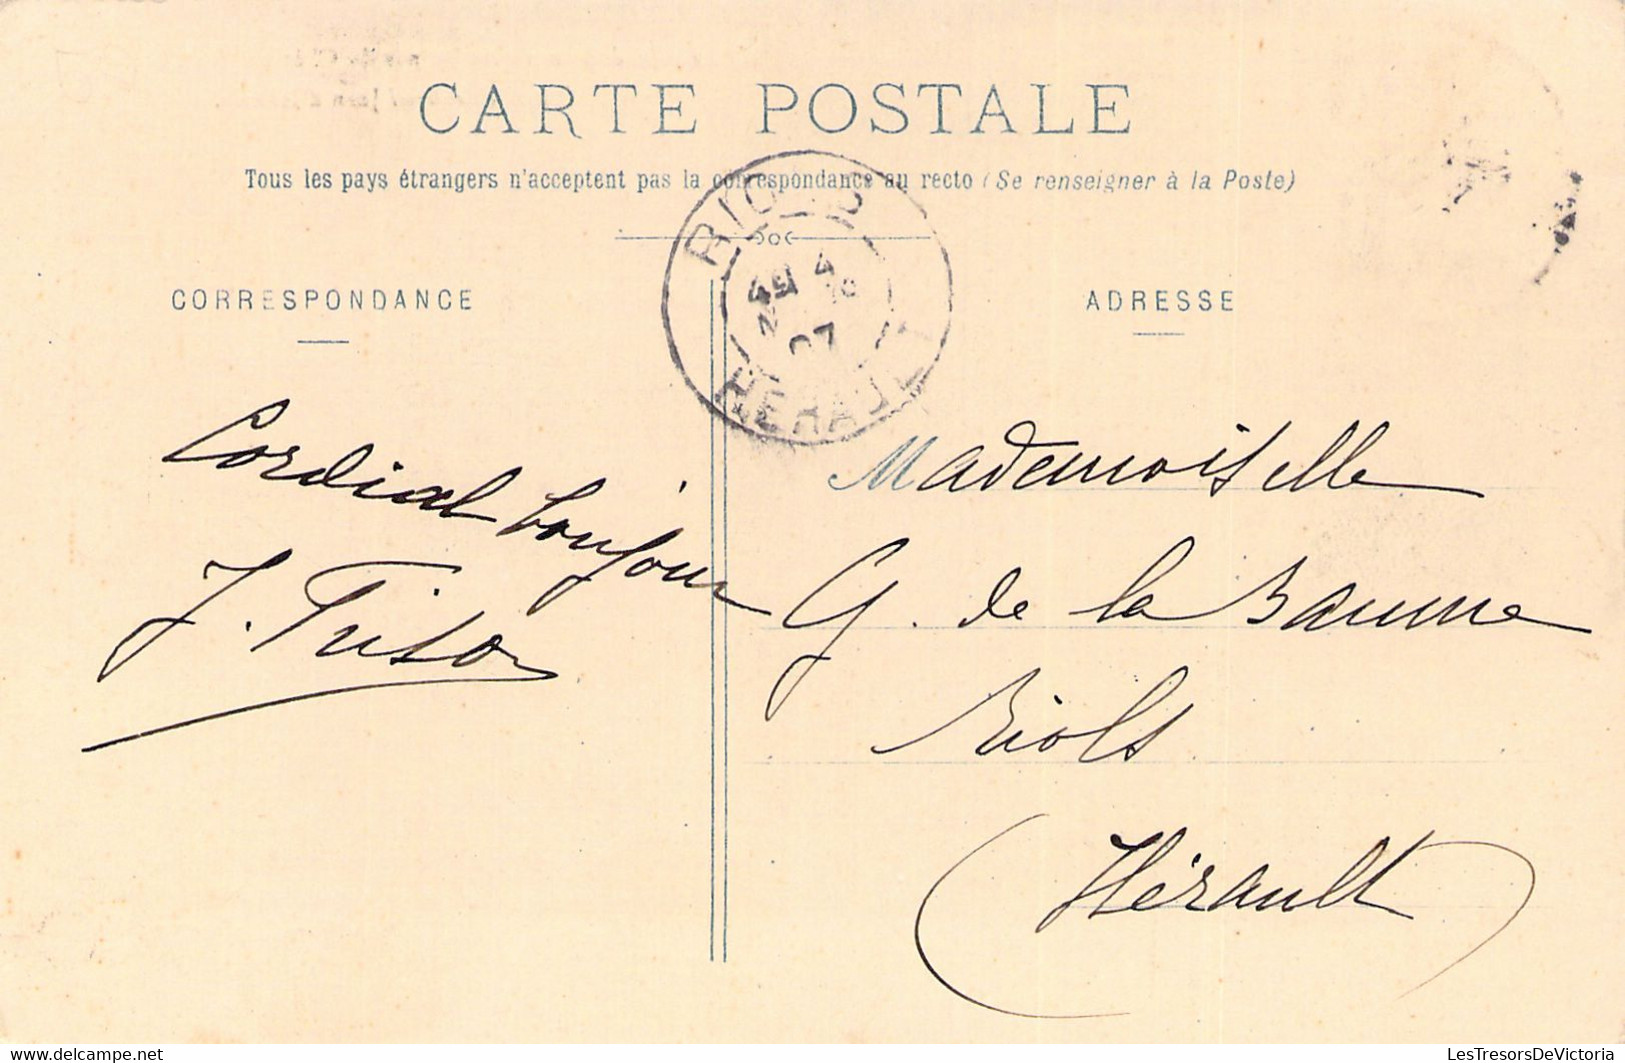 CARTE POSTALE
Tous les pays étrangers n'acceptent pas la correspondance au recto (Se renseigner à la Poste)
RIOLS
07
HERAULT
CORRESPONDANCE
ADRESSE
Cordial bonjour
Mademoiselle
G. de la Baume
Riols
(Hérault)
LesTresorsDeVictoria